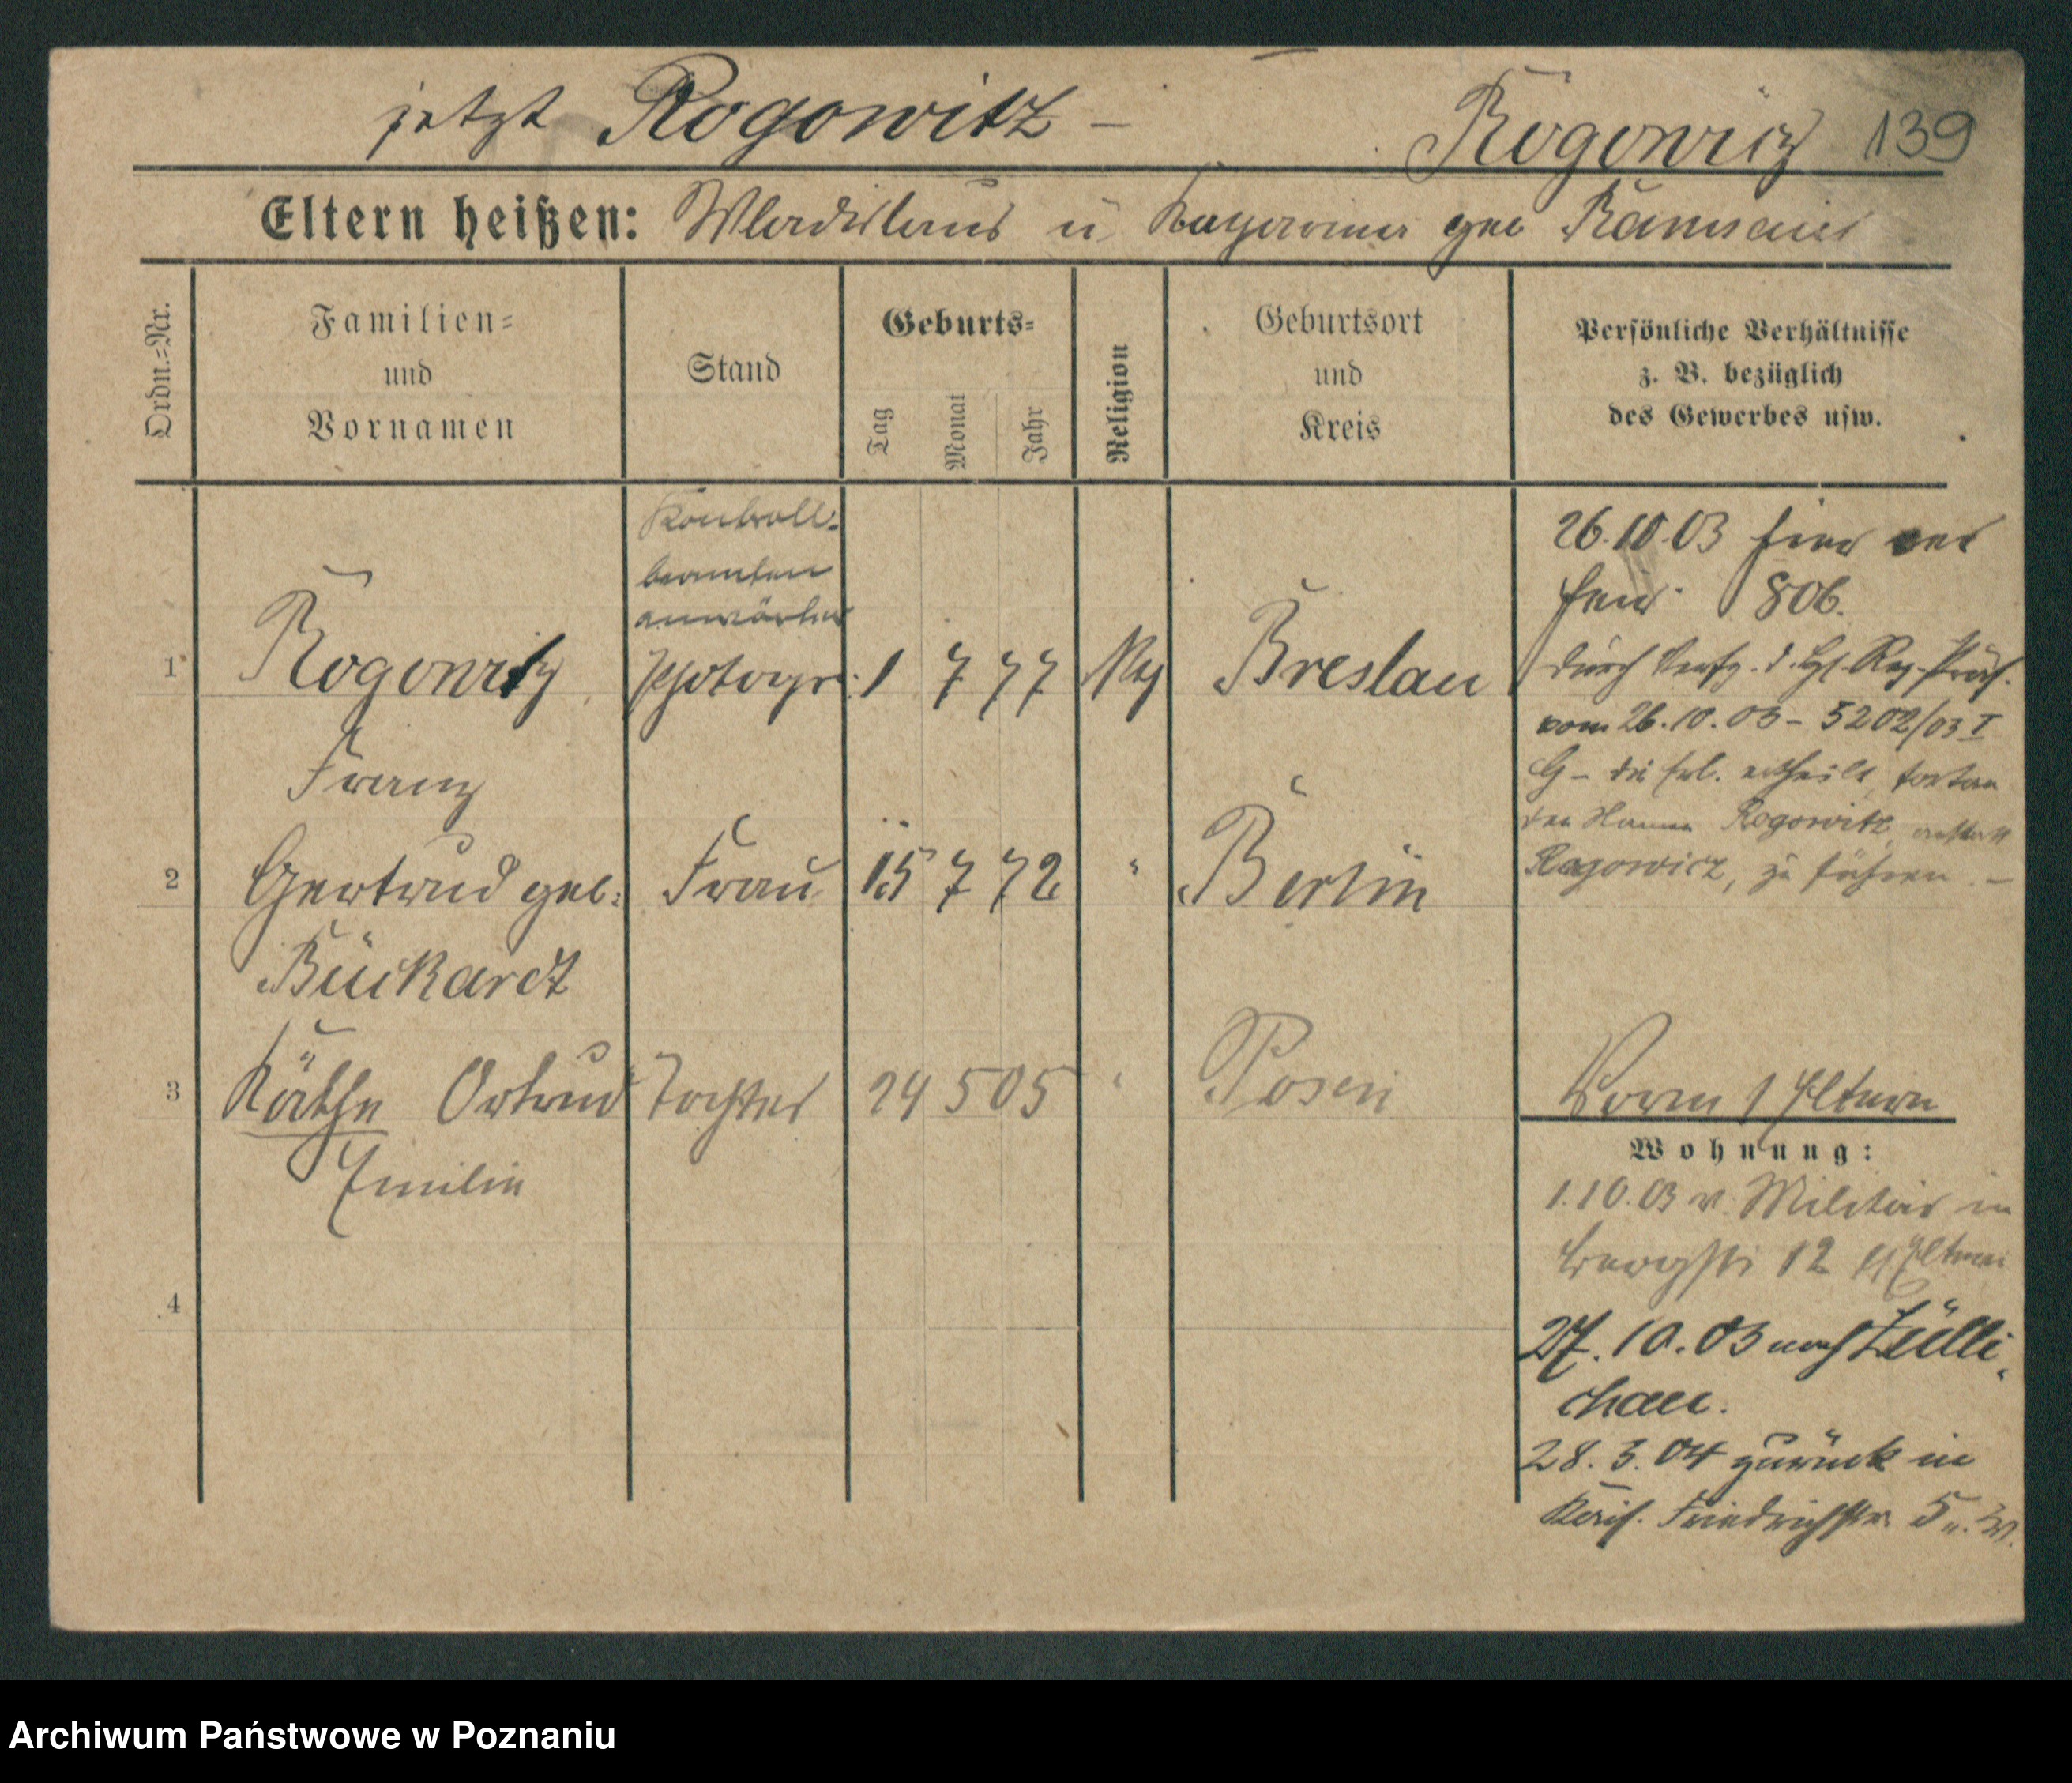 jetzt Rogowitz –
Rogowicz 139
Eltern heißen: Wladislaus u. geb
Ordn.=Nr.
Familien=
und
Vornamen
Stand
Geburts=
Tag
Monat
Jahr
Religion
Geburtsort
und
Kreis
Persönliche Verhältnisse
z. B. bezüglich
des Gewerbes usw.
Kontroll-
beamten
anwärter
1 Rogowitz Photogr. 1 7 77 Breslau
Franz
2 Gertrud geb. Frau 15 7 72 " Berlin
Bückardt
3 Käthe Ortrud Tochter 24 5 05 " Posen
Emilie
4
26.10.03 hier
806.
durch Verfg. d. Reg.-Präs.
vom 26.10.03 – 5202/03 I
G – die ertheilt, fortan
den Namen Rogowitz anstatt
Rogowicz, zu führen. –
Eltern
Wohnung:
1.10.03 v. Militär in
12 Eltern
27.10.03 nach Zülli-
chau.
28.3.04 zurück in
Friedrichstr. 5
Archiwum Państwowe w Poznaniu